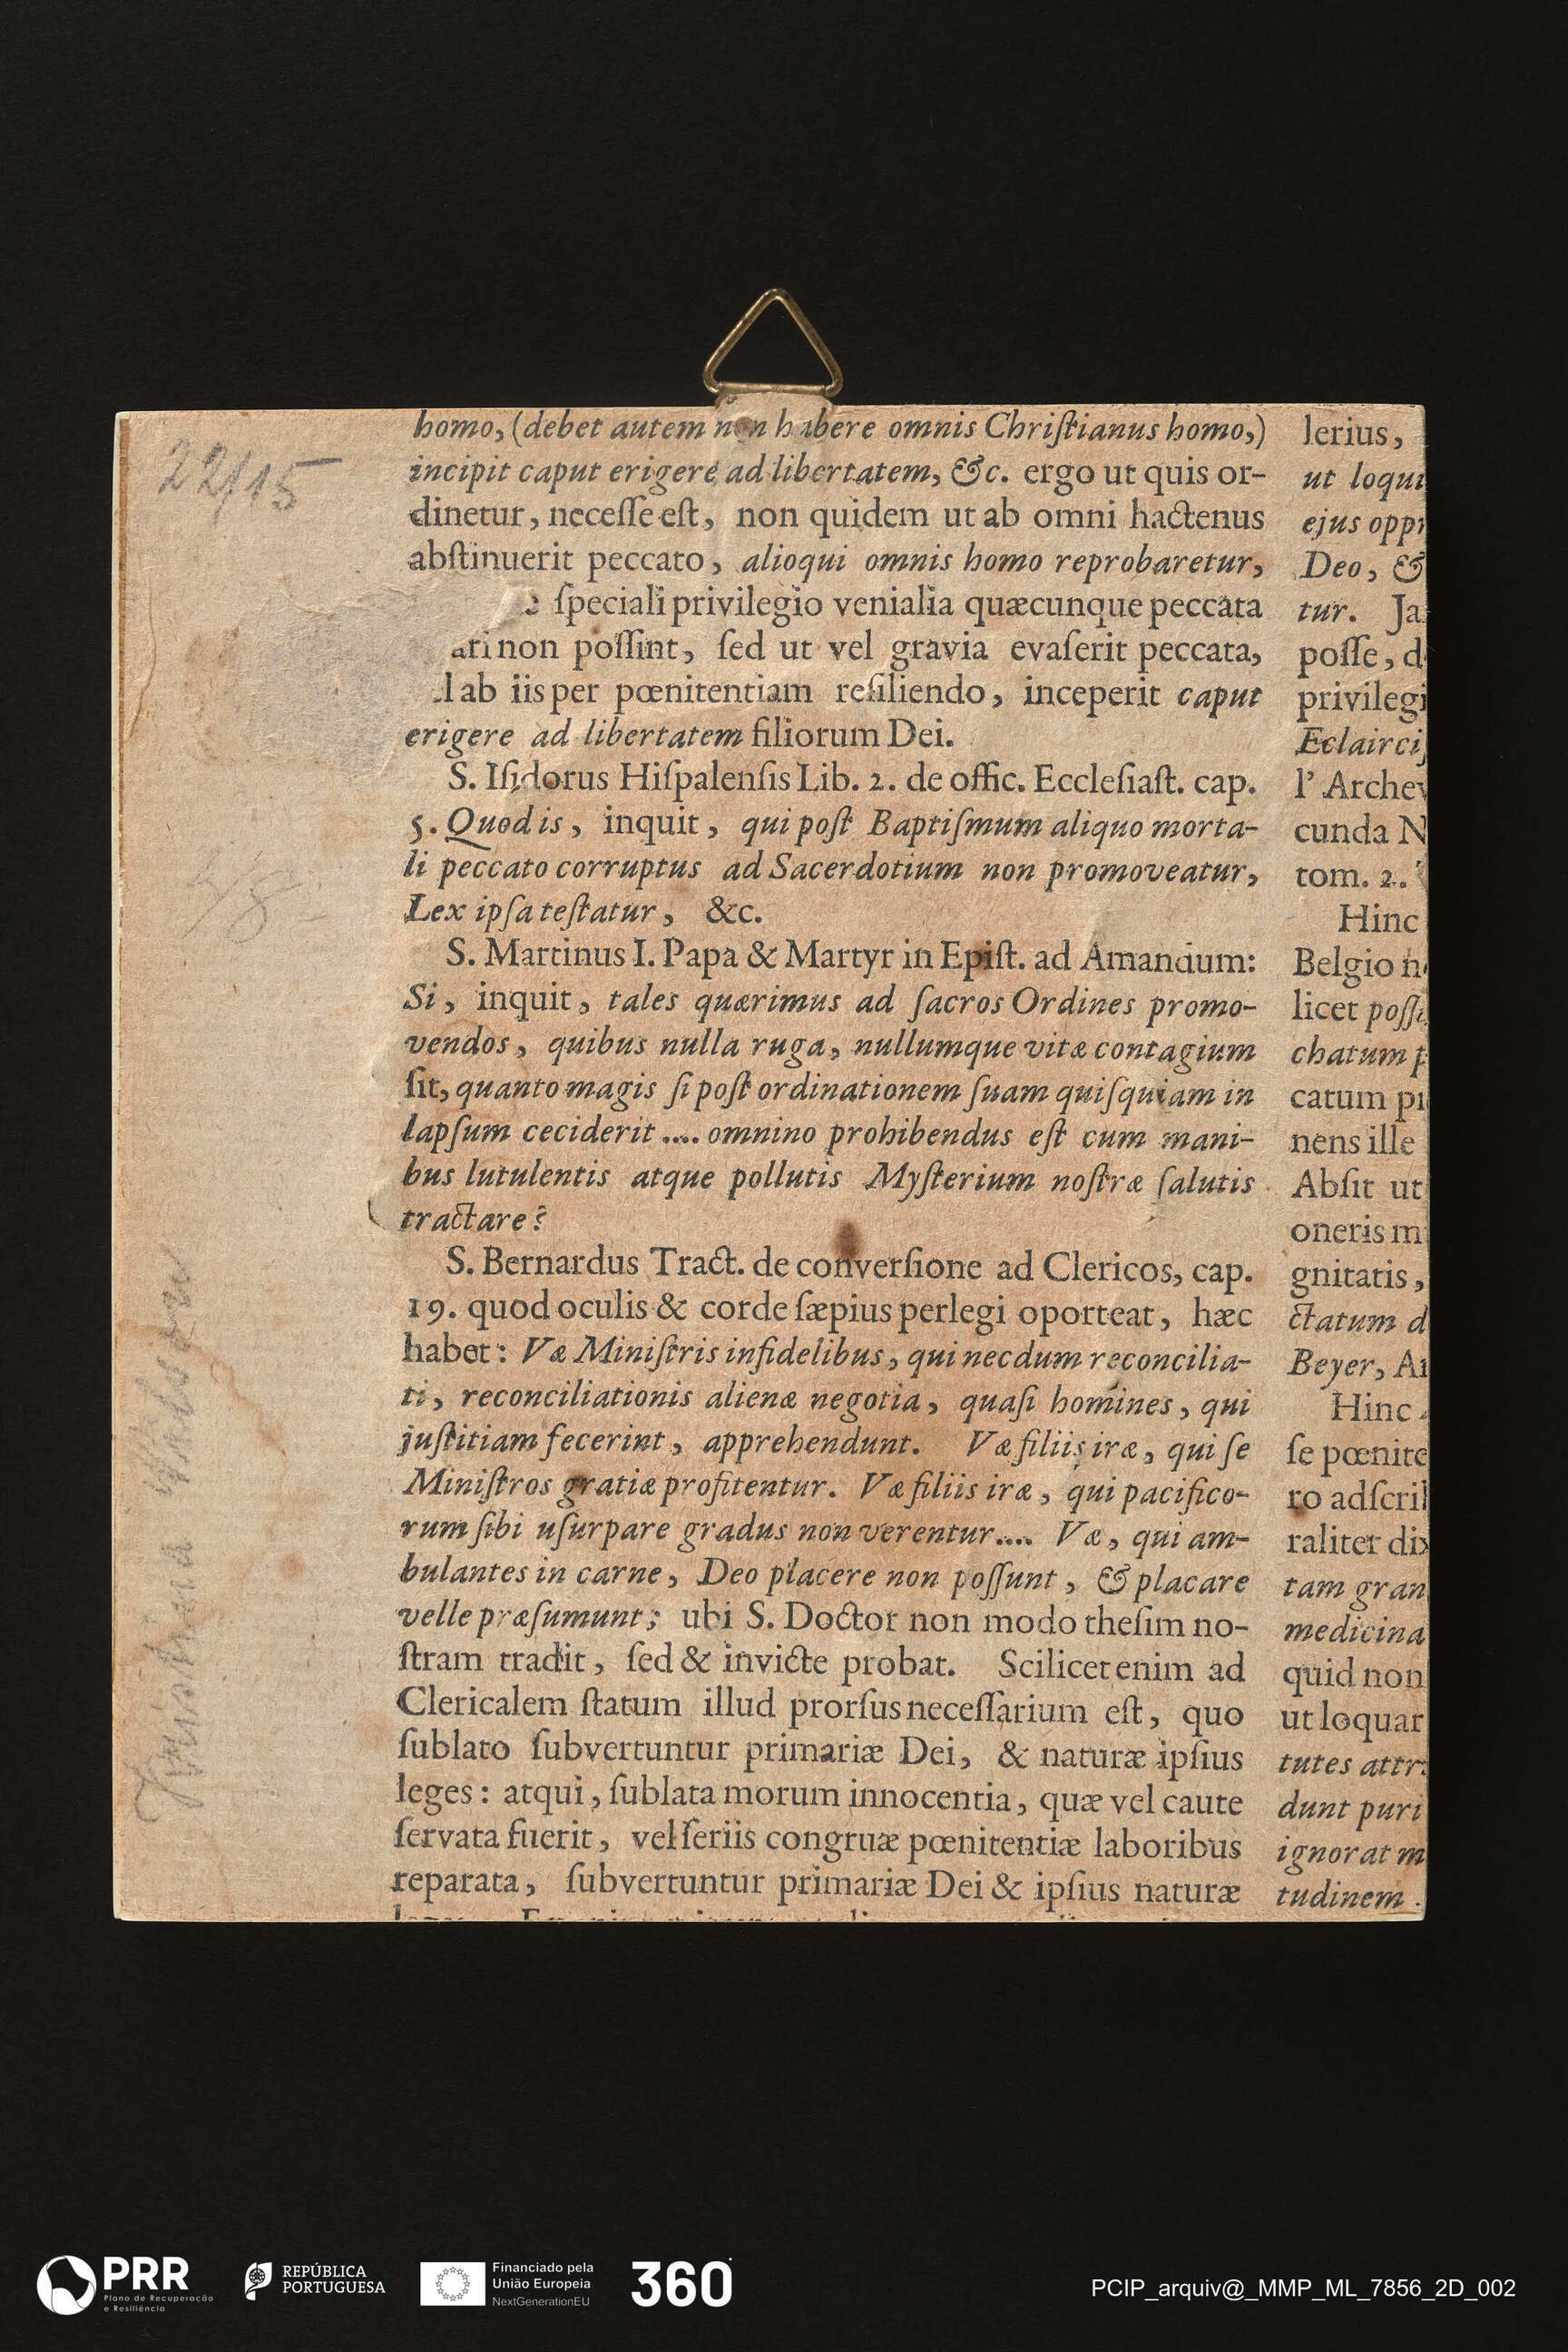 22/15
homo, (debet autem non habere omnis Chriſtianus homo,)
incipit caput erigere ad libertatem, &c. ergo ut quis or-
dinetur, neceſſe eſt, non quidem ut ab omni hactenus
abſtinuerit peccato, alioqui omnis homo reprobaretur,
ſpeciali privilegio venialia quæcunque peccata
non poſſint, ſed ut vel gravia evaſerit peccata,
ab iis per pœnitentiam reſiliendo, inceperit caput
erigere ad libertatem filiorum Dei.
S. Iſidorus Hiſpalenſis Lib. 2. de offic. Eccleſiaſt. cap.
5. Quod is, inquit, qui poſt Baptiſmum aliquo morta-
li peccato corruptus ad Sacerdotium non promoveatur,
Lex ipſa teſtatur, &c.
S. Martinus I. Papa & Martyr in Epiſt. ad Amandum:
Si, inquit, tales quærimus ad ſacros Ordines promo-
vendos, quibus nulla ruga, nullumque vitæ contagium
ſit, quanto magis ſi poſt ordinationem ſuam quiſquiam in
lapſum ceciderit .... omnino prohibendus eſt cum mani-
bus lutulentis atque pollutis Myſterium noſtræ ſalutis
tractare?
S. Bernardus Tract. de converſione ad Clericos, cap.
19. quod oculis & corde ſæpius perlegi oporteat, hæc
habet: Væ Miniſtris infidelibus, qui necdum reconcilia-
ti, reconciliationis alienæ negotia, quaſi homines, qui
juſtitiam fecerint, apprehendunt. Væ filiis iræ, qui ſe
Miniſtros gratiæ profitentur. Væ filiis iræ, qui pacifico-
rum ſibi uſurpare gradus non verentur.... Væ, qui am-
bulantes in carne, Deo placere non poſſunt, & placare
velle præſumunt; ubi S. Doctor non modo theſim no-
ſtram tradit, ſed & invicte probat. Scilicet enim ad
Clericalem ſtatum illud prorſus neceſſarium eſt, quo
ſublato ſubvertuntur primariæ Dei, & naturæ ipſius
leges: atqui, ſublata morum innocentia, quæ vel caute
ſervata fuerit, vel ſeriis congruæ pœnitentiæ laboribus
reparata, ſubvertuntur primariæ Dei & ipſius naturæ
lerius,
ut loqui
ejus oppr
Deo, &
tur. Ja
poſſe, d
privilegi
Eclairciſ
l' Archev
cunda N
tom. 2.
Hinc
Belgio n
licet poſſi
chatum p
catum pr
nens ille
Abſit ut
oneris m
gnitatis,
ctatum d
Beyer, Ar
Hinc
ſe pœnite
ro adſcri
raliter dix
tam gran
medicina
quid non
ut loquar
tutes attr
dunt puri
ignorat m
tudinem.
PRR
Plano de Recuperação
e Resiliência
REPÚBLICA
PORTUGUESA
Financiado pela
União Europeia
NextGenerationEU
360
PCIP_arquiv@_MMP_ML_7856_2D_002